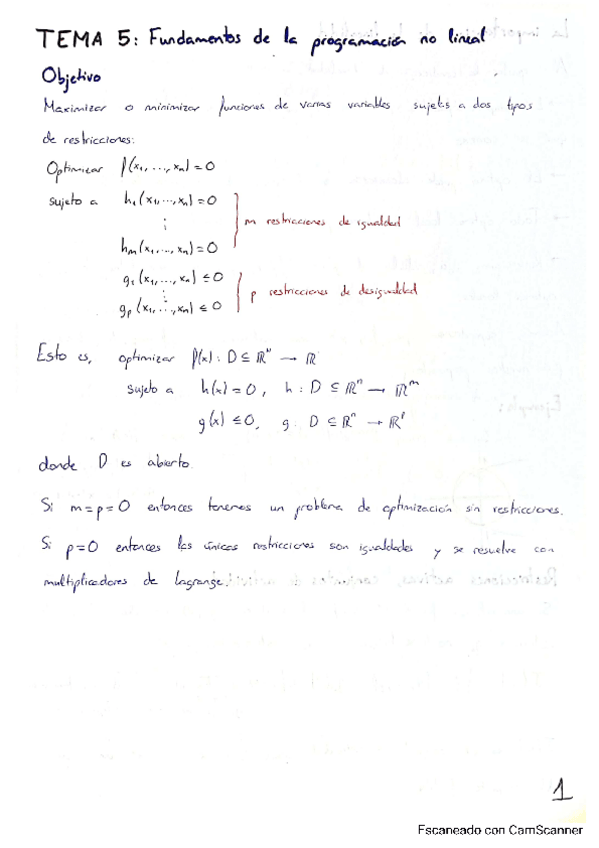 TEMA 5: Fundamentos de la programación no lineal
Objetivo
Maximizar o minimizar funciones de varias variables sujetas a dos tipos
de restricciones:
Optimizar f(x₁, ..., xₙ) = 0
sujeto a h₁(x₁, ..., xₙ) = 0
⋮ m restricciones de igualdad
hₘ(x₁, ..., xₙ) = 0
g₁(x₁, ..., xₙ) ≤ 0
⋮ p restricciones de desigualdad
gₚ(x₁, ..., xₙ) ≤ 0
Esto es, optimizar f(x): D ⊆ ℝⁿ → ℝ
sujeto a h(x) = 0, h: D ⊆ ℝⁿ → ℝᵐ
g(x) ≤ 0, g: D ⊆ ℝⁿ → ℝᵖ
donde D es abierto.
Si m=p=0 entonces tenemos un problema de optimización sin restricciones.
Si p=0 entonces las únicas restricciones son igualdades y se resuelve con
multiplicadores de Lagrange.
1
Escaneado con CamScanner